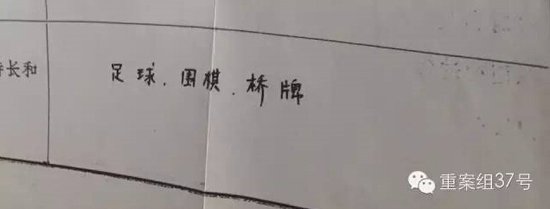 特长和
足球、围棋、桥牌
重案组37号